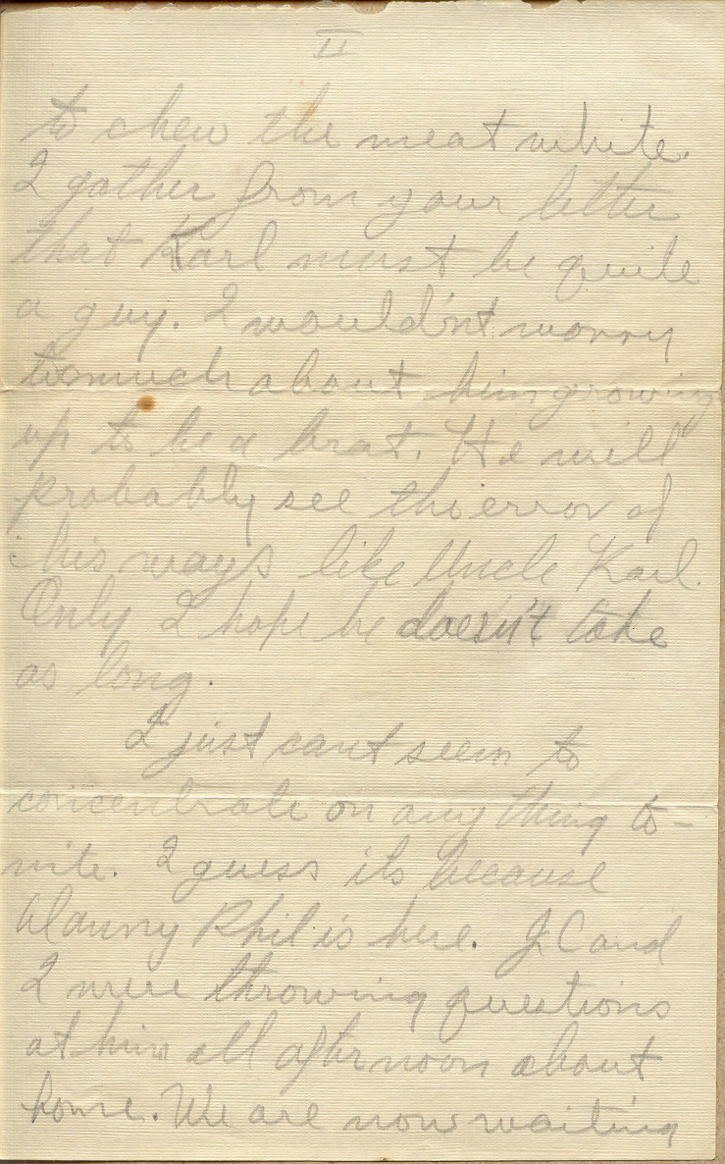 II
to chew the meat white.
I gather from your letter
that Karl must be quite
a guy. I wouldn't worry
too much about him growing
up to be a brat. He will
probably see the error of
his ways like Uncle Karl.
Only I hope he doesn't take
as long.
I just cant seem to
concentrate on any thing to-
nite. I guess its because
Phil is here. J.C and
I were throwing questions
at him all afternoon about
home. We are now waiting